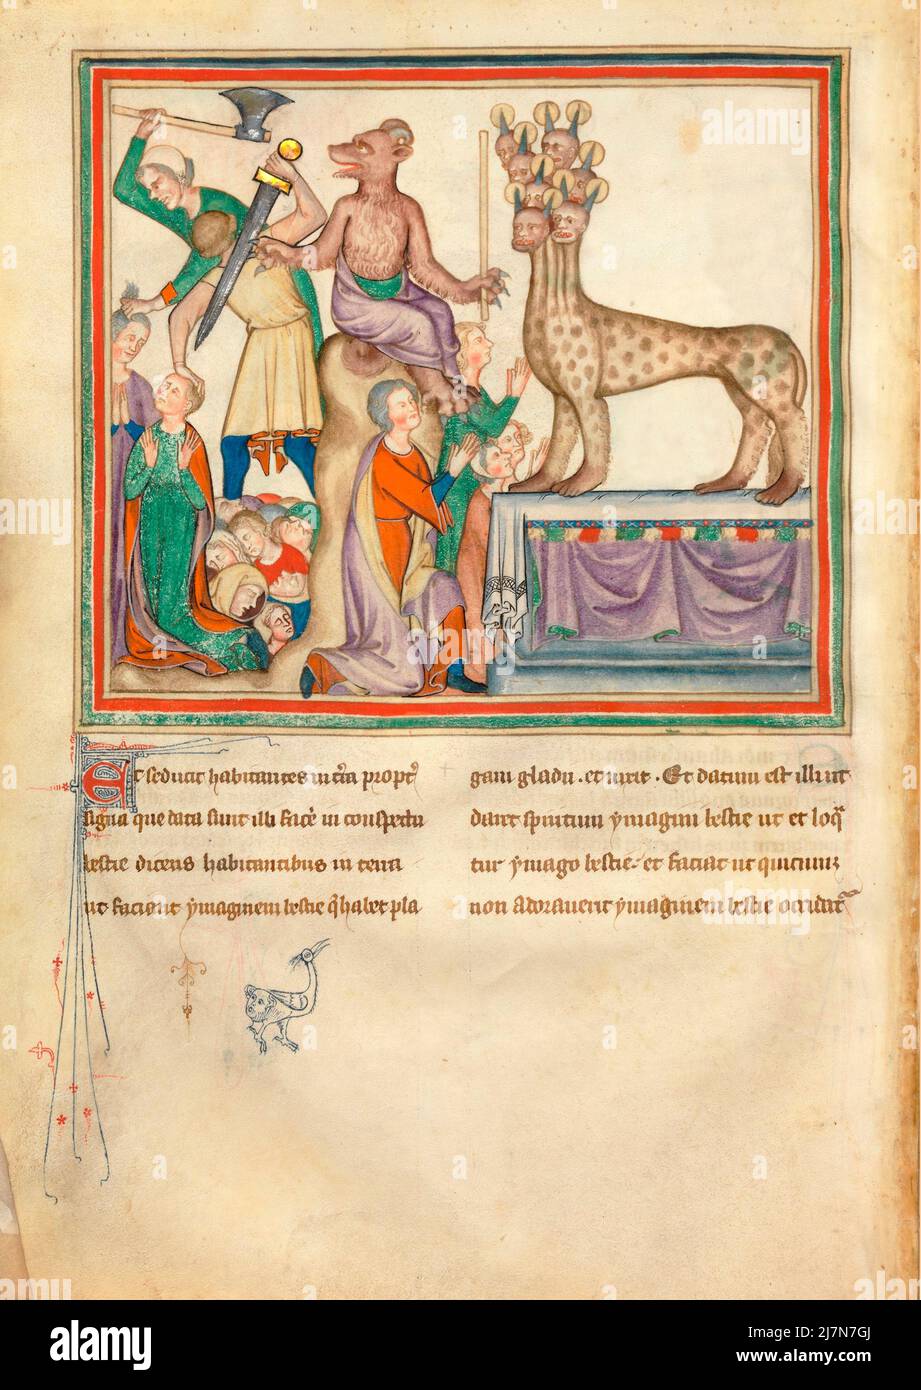 Et seducit habitantes in tra propt
signa que data sunt illi face in conspectu
bestie dicens habitantibus in terra
ut faciant ymaginem bestie q habet pla
gam gladii . et vixit . Et datum est illi ut
daret spiritum ymagini bestie ut et loq
tur ymago bestie . et faciat ut quicumz
non adoraverit ymaginem bestie occidat
alamy
Image ID: 2J7N7GJ
www.alamy.com